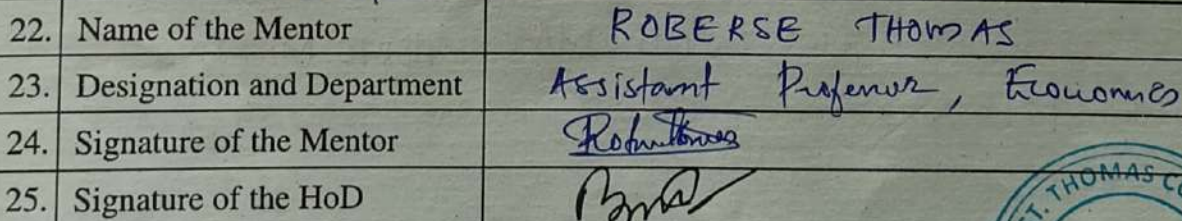 22. Name of the Mentor ROBERSE THOMAS
23. Designation and Department Assistant Professor, Economics
24. Signature of the Mentor
25. Signature of the HoD
T. THOMAS CO